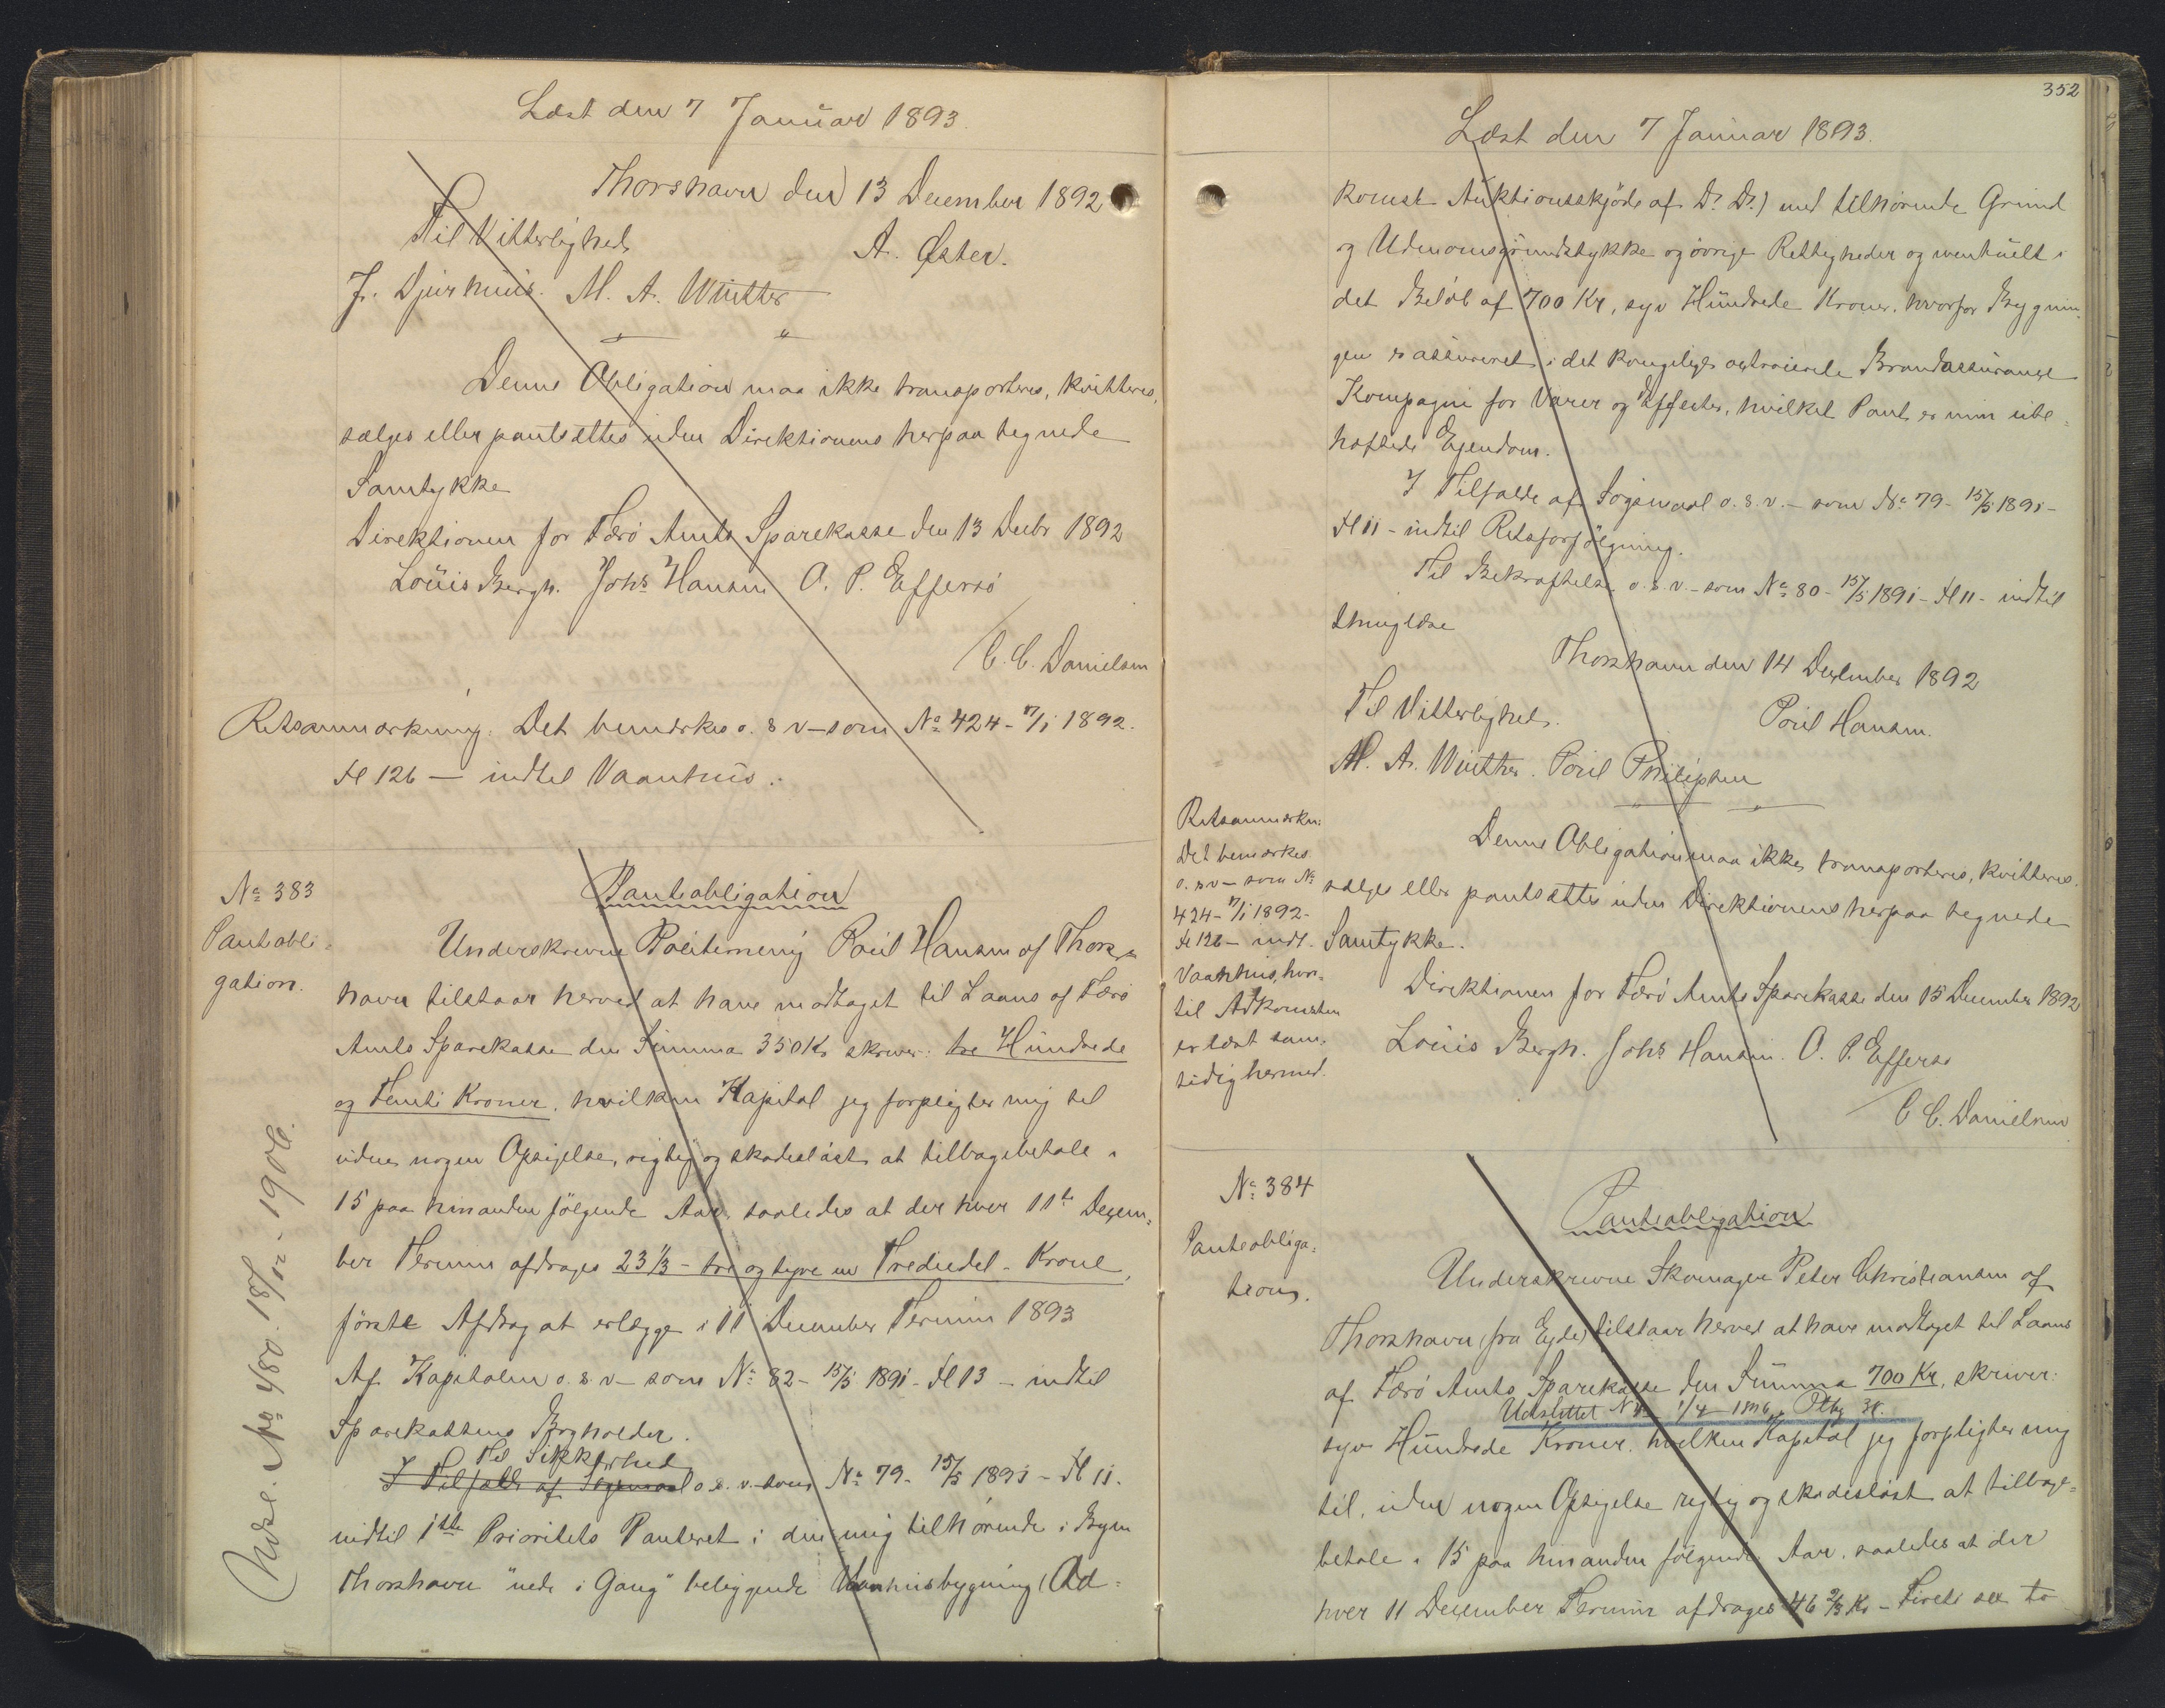 Læst den 7 Januar 1893.
Thorshavn den 13 December 1892
Til Vitterlighed
A. Øster.
J. Djurhuus. M. A. Winther
Denne Obligation maa ikke transporteres, kvitteres,
sælges eller pantsættes uden Direktionens herpaa tegnede
Samtykke
Direktionen for Færö Amts Sparekasse den 13 Decbr 1892
Louis Bergh. Johs Hansen O. P. Effersö
C. C. Danielsen
Retsanmærkning. Det bemærkes o. s v – som No 424 - 7/1 1892.
Fl 126 — indtil Vaanhus.
No 383
Panteobli=
gation.
Panteobligation
Underskrevne Poul Hansen af Thors=
havn tilstaar herved at have modtaget til Laans af Færö
Amts Sparekasse den Summa 350 Kr skriver: tre Hundrede
og Femti Kroner, hvilken Kapital jeg forpligter mig til
uden nogen Opsigelse, rigtig og skadesløst at tilbagebetale i
15 paa hinanden fölgende Aar, saaledes at der hver 11te Decem=
ber Termin afdrages 23 1/3 - tre og tyve en Trediedel - Krone,
förste Afdrag at erlægge i 11 December Termin 1893
Af Kapitalen o. s. v – som No 82 - 15/5 1891 - Fl 13 – indtil
Sparekassens Bogholder.
Til Sikkerhed
I Tilfælde af Søgsmaal o. s. v. som No 79. 15/5 1891 - Fl 11.
indtil 1ste Prioritets Panteret i den mig tilhørende i Byen
Thorshavn "nede i Gang" beliggende Vaanhusbygning (Ad=
No 480. 18/12 - 1906.
352
Læst den 7 Januar 1893.
komst Auktionsskjöde af D. D.) med tilhörende Grund
og Udenomsgrundstykke og övrige Rettigheder og eventuelt i
det Belöb af 700 Kr, syv Hundrede Kroner, hvorfor Bygnin=
gen er assureret i det kongelige octroierede Brandassurance
Kompagni for Varer og Effecter, hvilket Pant er min ube=
hæftede Ejendom.
I Tilfælde af Søgsmaal o. s. v. – som No 79 - 15/5 1891 -
Fl 11 - indtil Retsforfölgning.
Til Bekræftelse o. s. v. – som No 80 - 15/5 1891 - Fl 11 - indtil
Thinglæse
Thorshavn den 14 December 1892
Til Vitterlighed.
Poul Hansen.
M. A. Winther. Poul Philipsen
Retsanmærkn:
Det bemærkes
o. s v – som No
424 - 7/1 1892 -
Fl 126 – indt.
Vaanhus, hvor=
til Adkomsten
er læst sam=
tidig hermed.
Denne Obligation maa ikke transporteres, kvitteres,
sælges eller pantsættes uden Direktionens herpaa tegnede
Samtykke.
Direktionen for Færö Amts Sparekasse den 15 December 1892
Louis Bergh. Johs Hansen. O. P. Effersö
C C. Danielsen
No 384
Panteobliga=
tion.
Panteobligation
Underskrevne Skomager Peter Christiansen af
Thorshavn (fra Ejde) tilstaar herved at have modtaget til Laans
af Færö Amts Sparekasse den Summa 700 Kr, skriver:
Udslettet
syv Hundrede Kroner, hvilken Kapital jeg forpligter mig
til, uden nogen Opsigelse rigtig og skadesløst at tilbage=
betale i 15 paa hinanden følgende Aar, saaledes at der
hver 11 December Termin afdrages 46 2/3 Kr - Fireti sex to